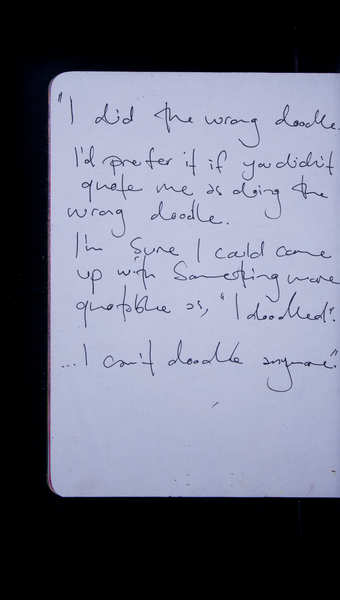 "I did the wrong doodle.
I'd prefer it if you didn't
quote me as doing the
wrong doodle.
I'm sure I could come
up with something more
quotable as, "I doodled".
...I can't doodle anymore".